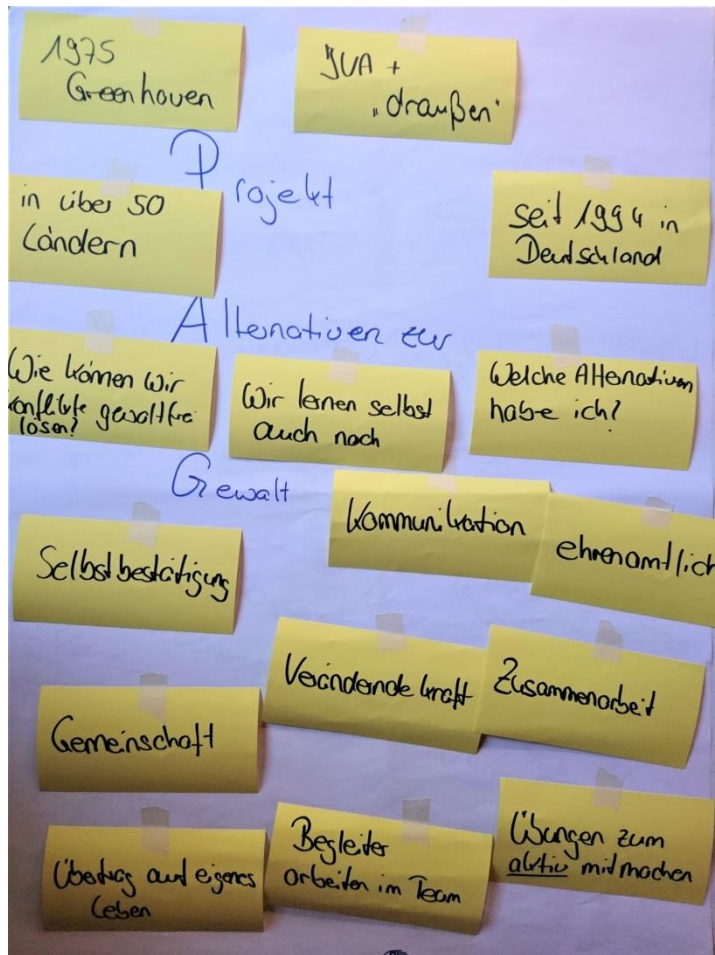 1975
Greenhaven
JVA +
„draußen“
Projekt
in über 50
Ländern
seit 1994 in
Deutschland
Alternativen zur
Wie können wir
Konflikte gewaltfrei
lösen?
Wir lernen selbst
auch noch
Welche Alternativen
habe ich?
Gewalt
Kommunikation
ehrenamtlich
Selbstbestätigung
Verändernde Kraft
Zusammenarbeit
Gemeinschaft
Übertrag auf eigenes
Leben
Begleiter
arbeiten im Team
Übungen zum
aktiv mitmachen